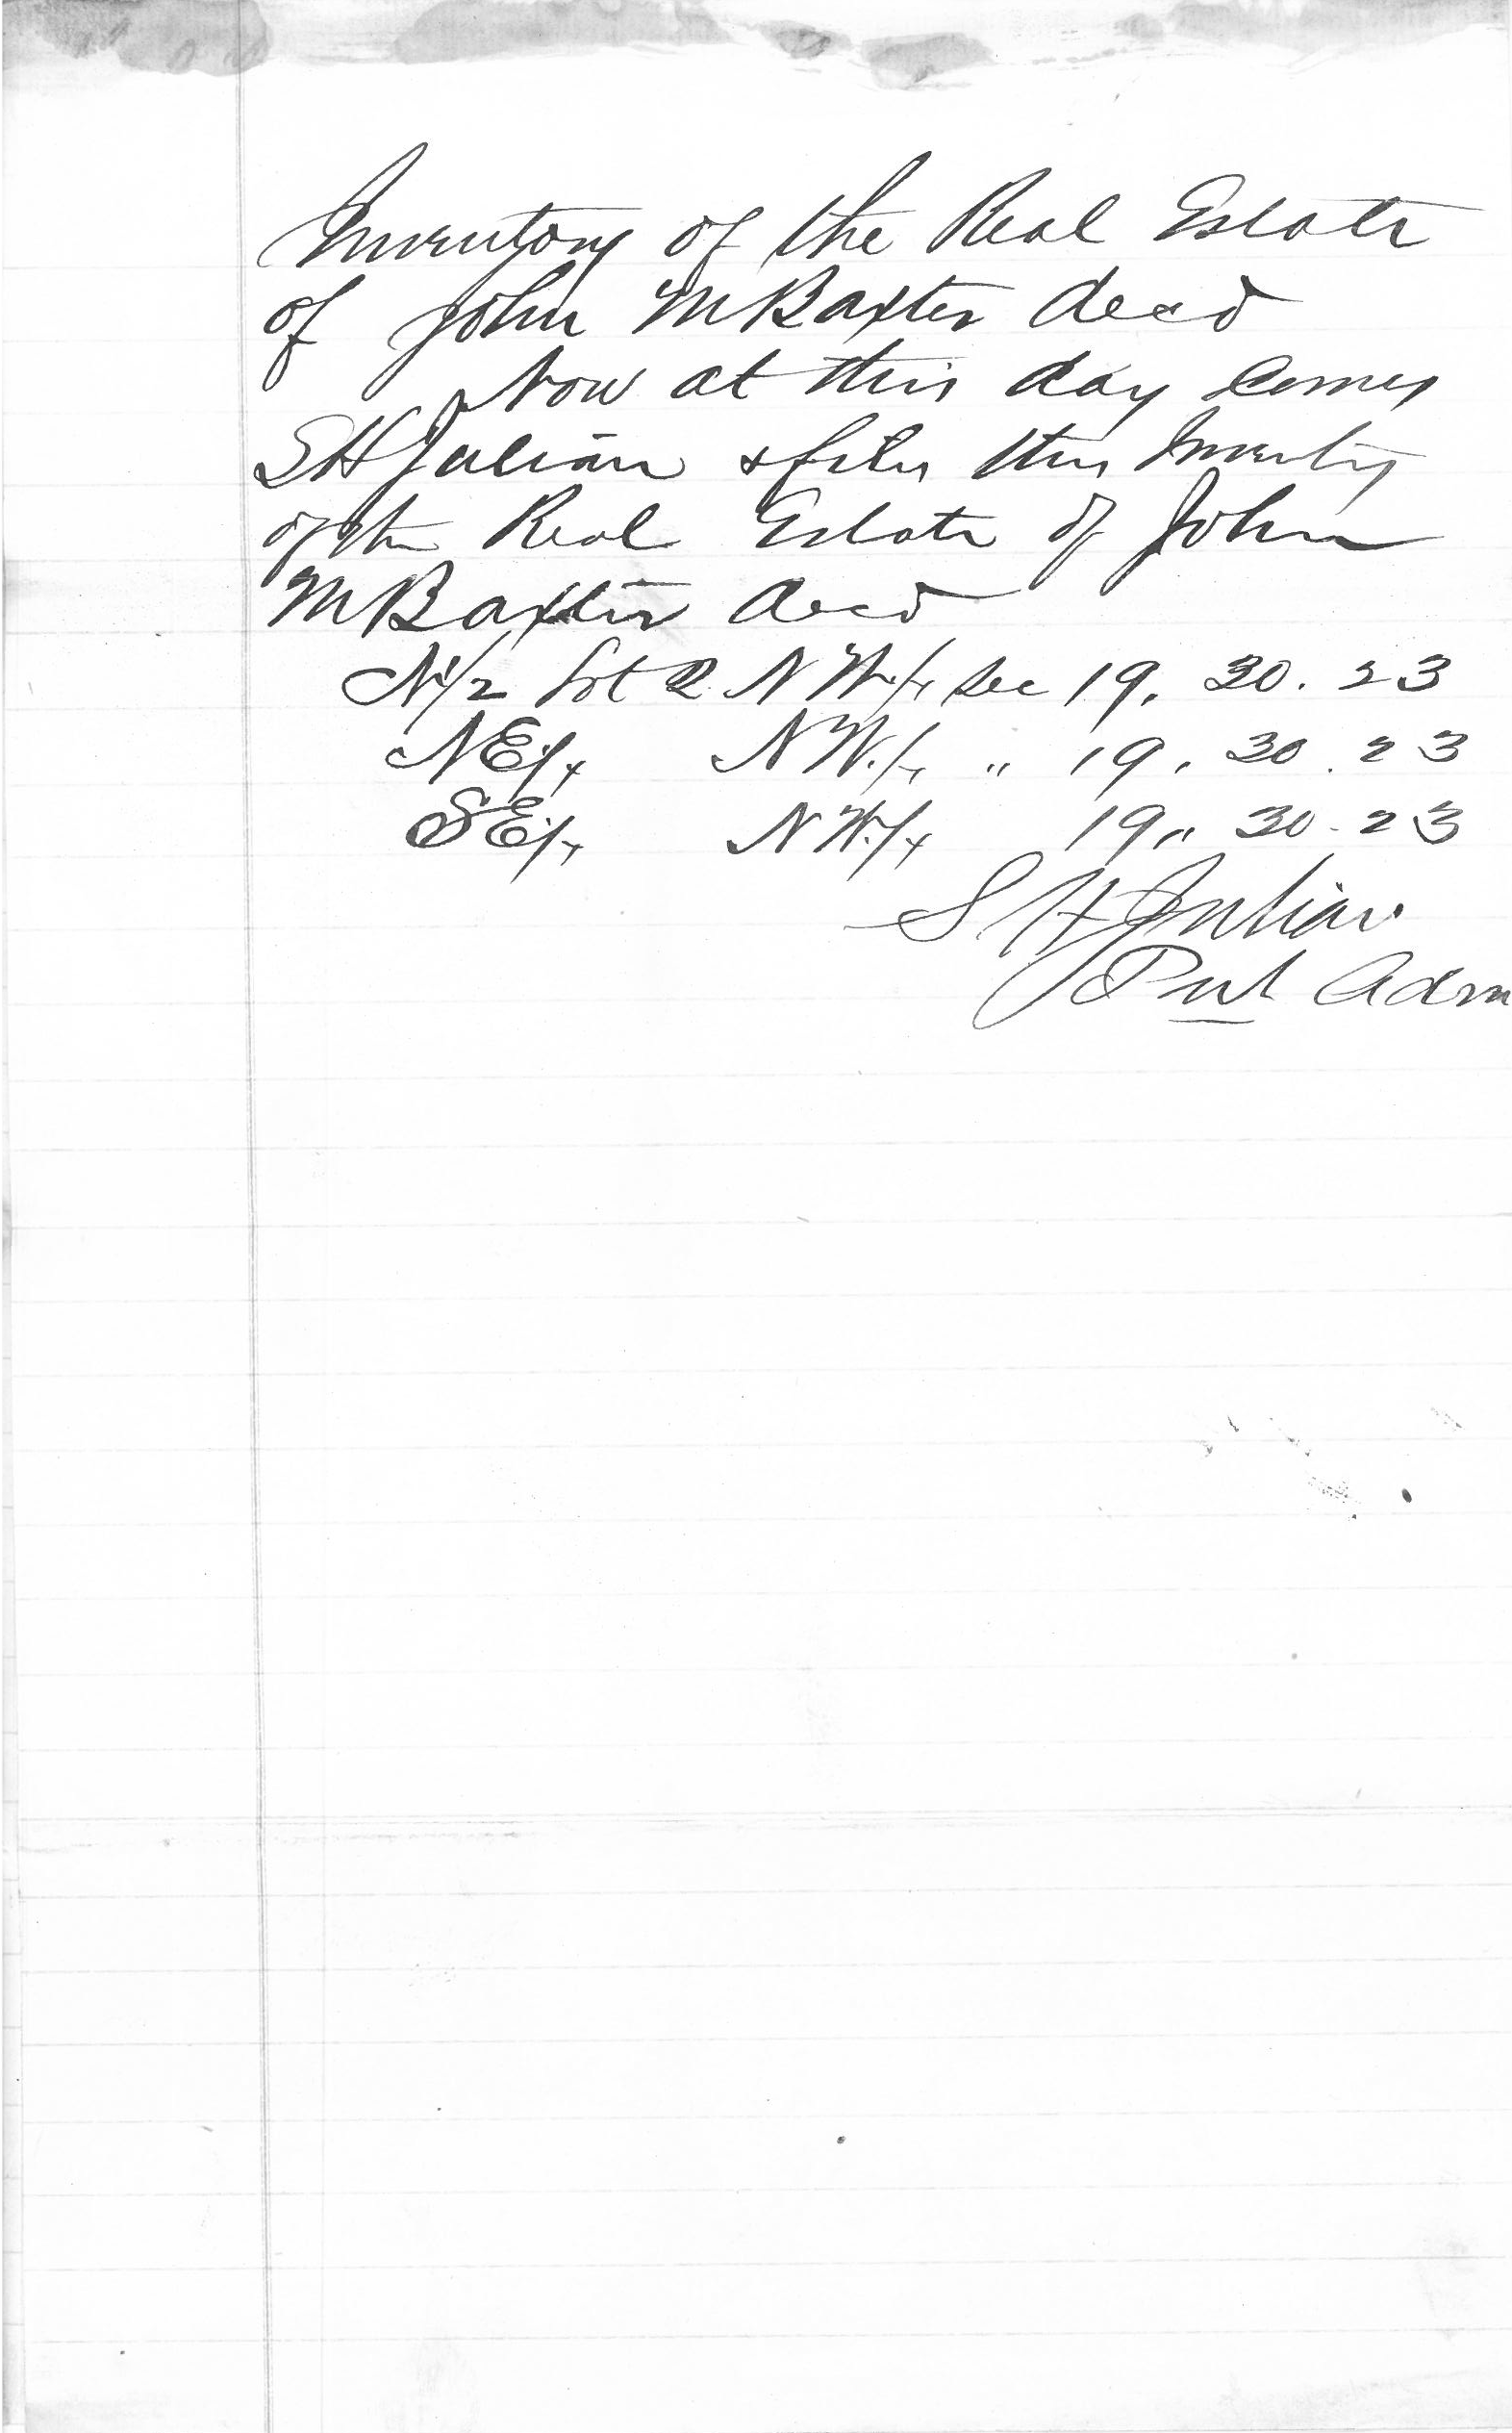 Inventory of the Real Estate
of John M Baxter decd
Now at this day comes
S H Julian & files this Inventory
of the Real Estate of John
M Baxter decd
N 1/2 Lot 2 N W 1/4 Sec 19. 30. 23
N E 1/4 N W 1/4 " 19. 30. 23
S E 1/4 N W 1/4 19 " 30 - 23
S H Julian
Pub Adm